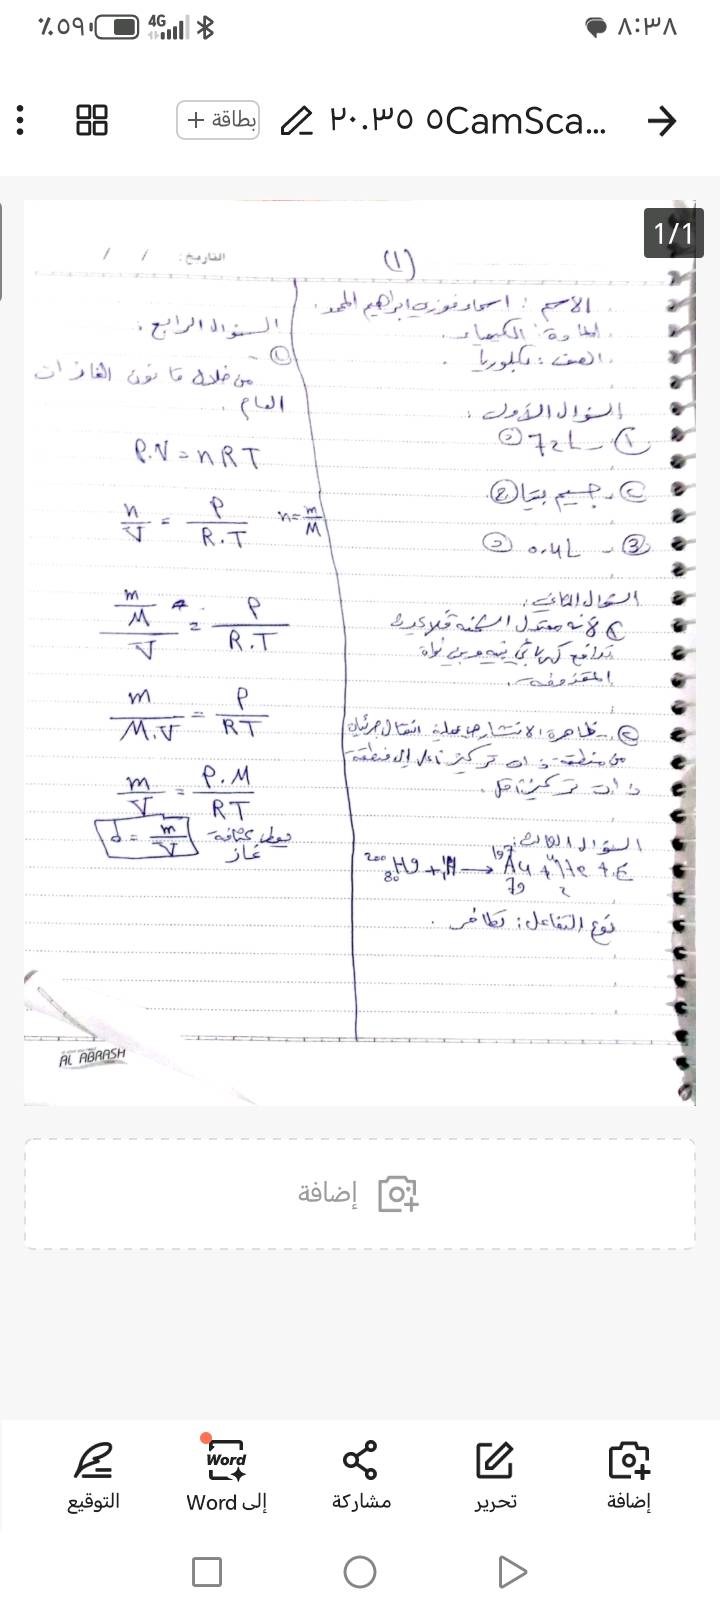 ٪٥٩ 4G ٨:٣٨
بطاقة + ٢٠.٣٥ ٥CamSca...
1/1
التاريخ: / /
(١)
الاسم : اسماء فوزي ابراهيم المحمد.
المادة: الكيمياء.
الصف: بكلوريا.
السؤال الأول:
١- 72L
٢- جسيم بيتا
3- 0.4L
السؤال الثاني:
١) لأنه معتدل الشحنة فلا يحدث
تدافع كهربائي بينه وبين نواة
المقذوفة.
٢- ظاهرة الانتشار هي عملية انتقال جزيئات
من منطقة ذات تركيز أعلى إلى منطقة
ذات تركيز أقل.
السؤال الثالث:
²⁰⁰₈₀Hg + ¹₁H → ¹⁹⁷₇₉Au + ⁴₂He + E
نوع التفاعل: تطافر.
السؤال الرابع:
١-
من خلال قانون الغازات
العام.
P.V = nRT
n/V = P/R.T n = m/M
(m/M)/V = P/R.T
m/M.V = P/RT
m/V = P.M/RT
d = m/V تعطى كثافة
غاز
AL ABRASH
إضافة
إضافة
تحرير
مشاركة
Word
إلى Word
التوقيع